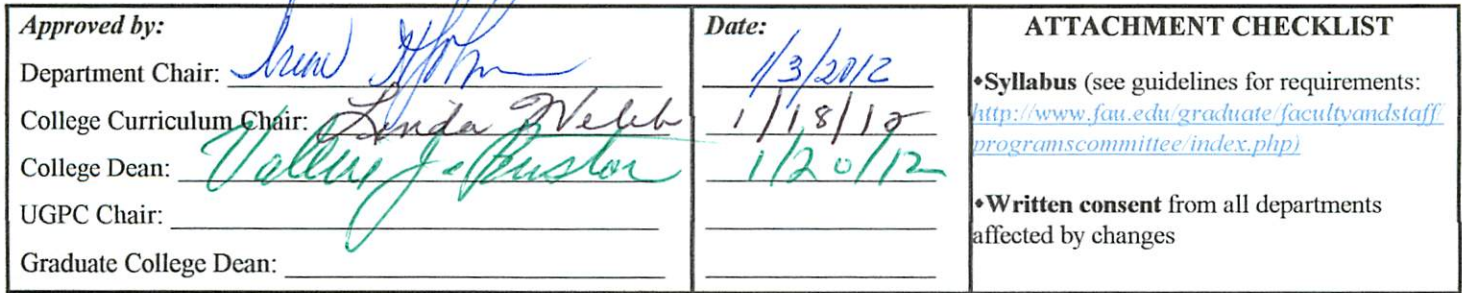 Approved by:
Department Chair:
College Curriculum Chair: Linda Webb
College Dean:
UGPC Chair:
Graduate College Dean:
Date:
1/3/2012
1/18/12
1/20/12
ATTACHMENT CHECKLIST
•Syllabus (see guidelines for requirements:
http://www.fau.edu/graduate/facultyandstaff/
programscommittee/index.php)
•Written consent from all departments
affected by changes